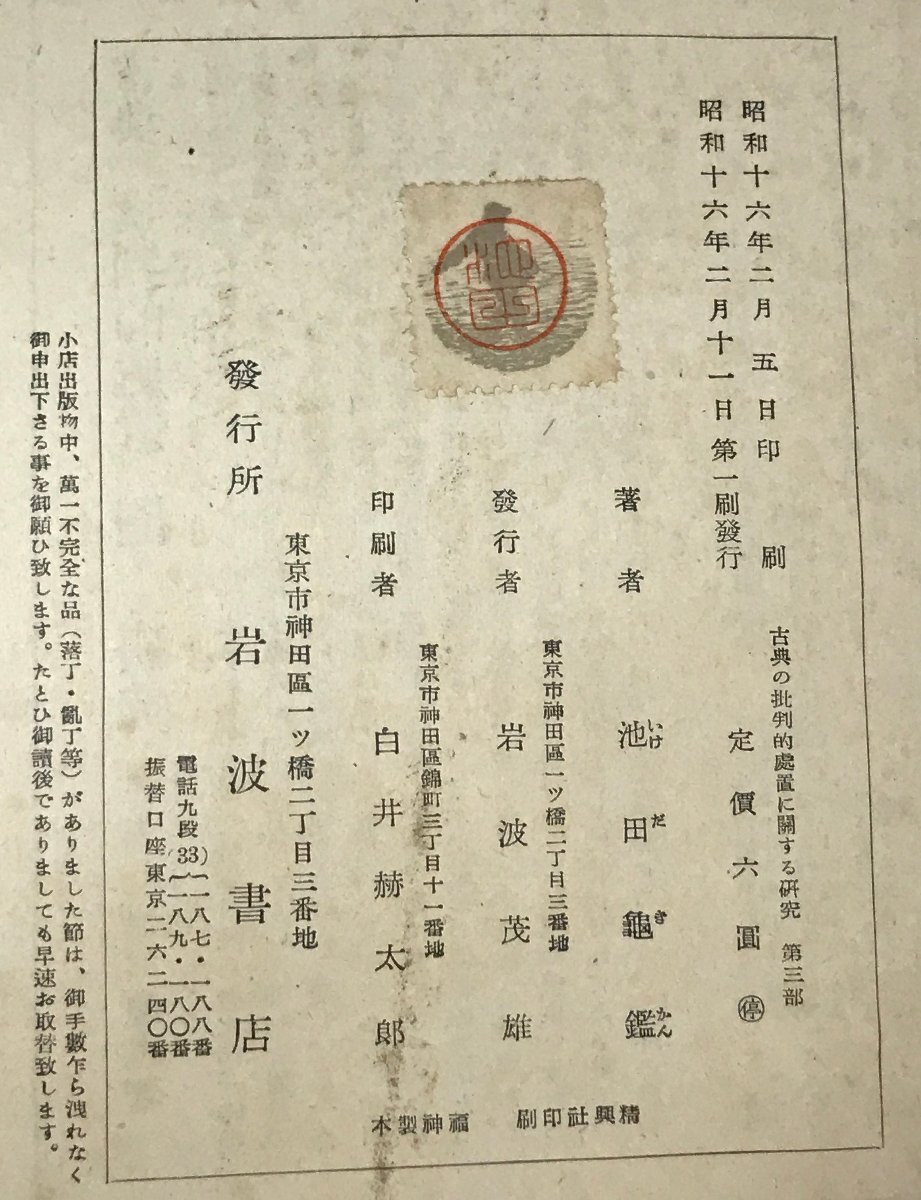 昭和十六年二月五日印刷
昭和十六年二月十一日第一刷發行
古典の批判的處置に關する硏究 第三部
定價六圓 停
著者 池田龜鑑
いけ だ き かん
發行者 東京市神田區一ツ橋二丁目三番地
岩波茂雄
印刷者 東京市神田區錦町三丁目十一番地
白井赫太郎
發行所 東京市神田區一ツ橋二丁目三番地
岩波書店
電話九段(33)一八七・一八八番
一八九・一八〇番
振替口座東京二六二四〇番
精興社印刷 福神製本
小店出版物中、萬一不完全な品(落丁・亂丁等)がありました節は、御手數乍ら洩れなく
御申出下さる事を御願ひ致します。たとひ御讀後でありましても早速お取替致します。